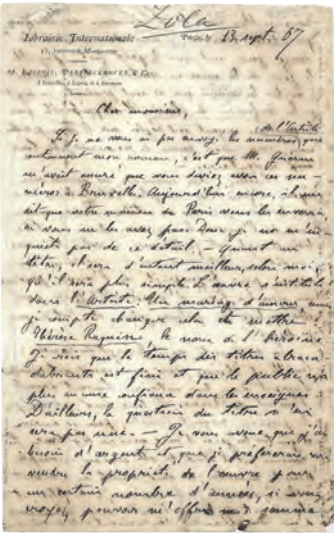 Zola
Librairie Internationale
15, Boulevard Montmartre
Paris, le 13 sept. 67
A. Lacroix, Verboeckhoven & Cie
à Bruxelles, à Leipzig et à Livourne
Cher monsieur,
de l'Artiste
Si je ne vous ai pas envoyé les numéros, qui
contiennent mon roman, c'est que M.
m'avait assuré que vous deviez avoir ces nu-
méros à Bruxelles. Aujourd'hui encore, il me
dit que votre maison de Paris vous les enverra
si vous ne les avez pas. Donc je ne m'in-
quiète pas de ce détail. — Quant au
titre, il sera d'autant meilleur, selon moi,
qu'il sera plus simple. L'œuvre s'intitule
dans l'Artiste. Un mariage d'amour, mais
je compte changer cela et mettre
Thérèse Raquin, le nom de l'héroïne
Je crois que le temps des titres abraca-
dabrants est fini et que le public n'a
plus aucune confiance dans les enseignes.
D'ailleurs, la question du titre n'en
sera pas une. — Je vous avoue que j'ai
besoin d'argent et que je préférerais vous
vendre la propriété de l'œuvre pour
un certain nombre d'années, si vous
croyez pouvoir m'offrir une somme